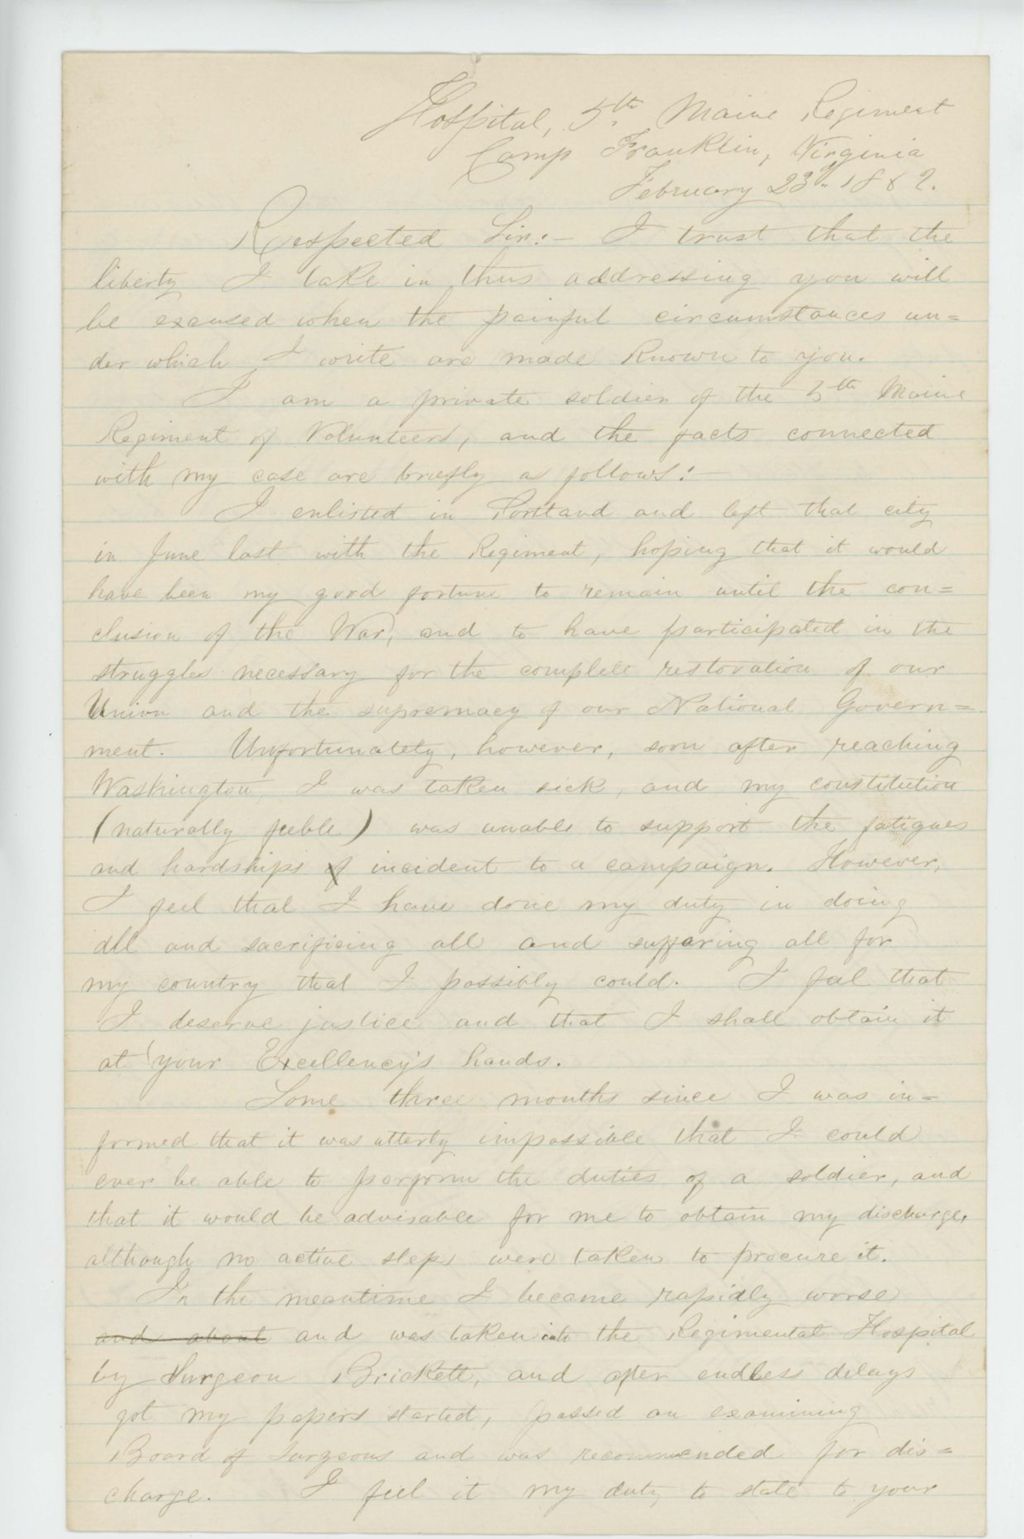 Hospital, 5th Maine Regiment
Camp Franklin, Virginia
February 23d. 1862.
Respected Sir:- I trust that the
liberty I take in thus addressing you will
be excused when the painful circumstances un=
der which I write are made known to you.
I am a private soldier of the 5th Maine
Regiment of Volunteers, and the facts connected
with my case are briefly a follows:-
I enlisted in Portland and left that city
in June last with the Regiment, hoping that it would
have been my good fortune to remain until the con=
clusion of the War, and to have participated in the
struggles necessary for the complete restoration of our
Union and the supremacy of our National Govern=
ment. Unfortunately, however, soon after reaching
Washington, I was taken sick, and my constitution
(naturally feeble) was unable to support the fatigues
and hardships of incident to a campaign. However,
I feel that I have done my duty in doing
all and sacrificing all and suffering all for
my country that I possibly could. I feel that
I deserve justice and that I shall obtain it
at your Excellency's hands.
Some three months since I was in=
formed that it was utterly impossible that I could
ever be able to perform the duties of a soldier, and
that it would be advisable for me to obtain my discharge,
although no active steps were taken to procure it.
In the meantime I became rapidly worse
and about and was taken into the Regimental Hospital
by Surgeon Brickett, and after endless delays
got my papers started, passed an examining
Board of Surgeons and was recommended for dis=
charge. I feel it my duty to state to your